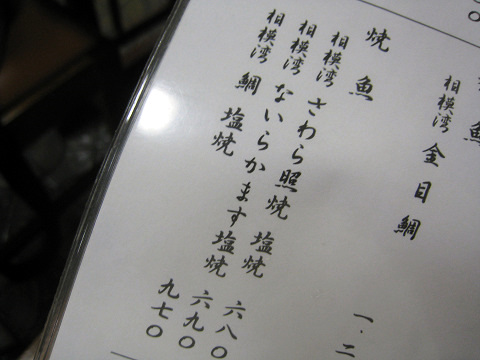 魚
相模湾 金目鯛 一.二
焼 魚
相模湾 さわら照焼 塩焼 六八〇
相模湾 ないらかます塩焼 六九〇
相模湾 鯛 塩焼 九七〇